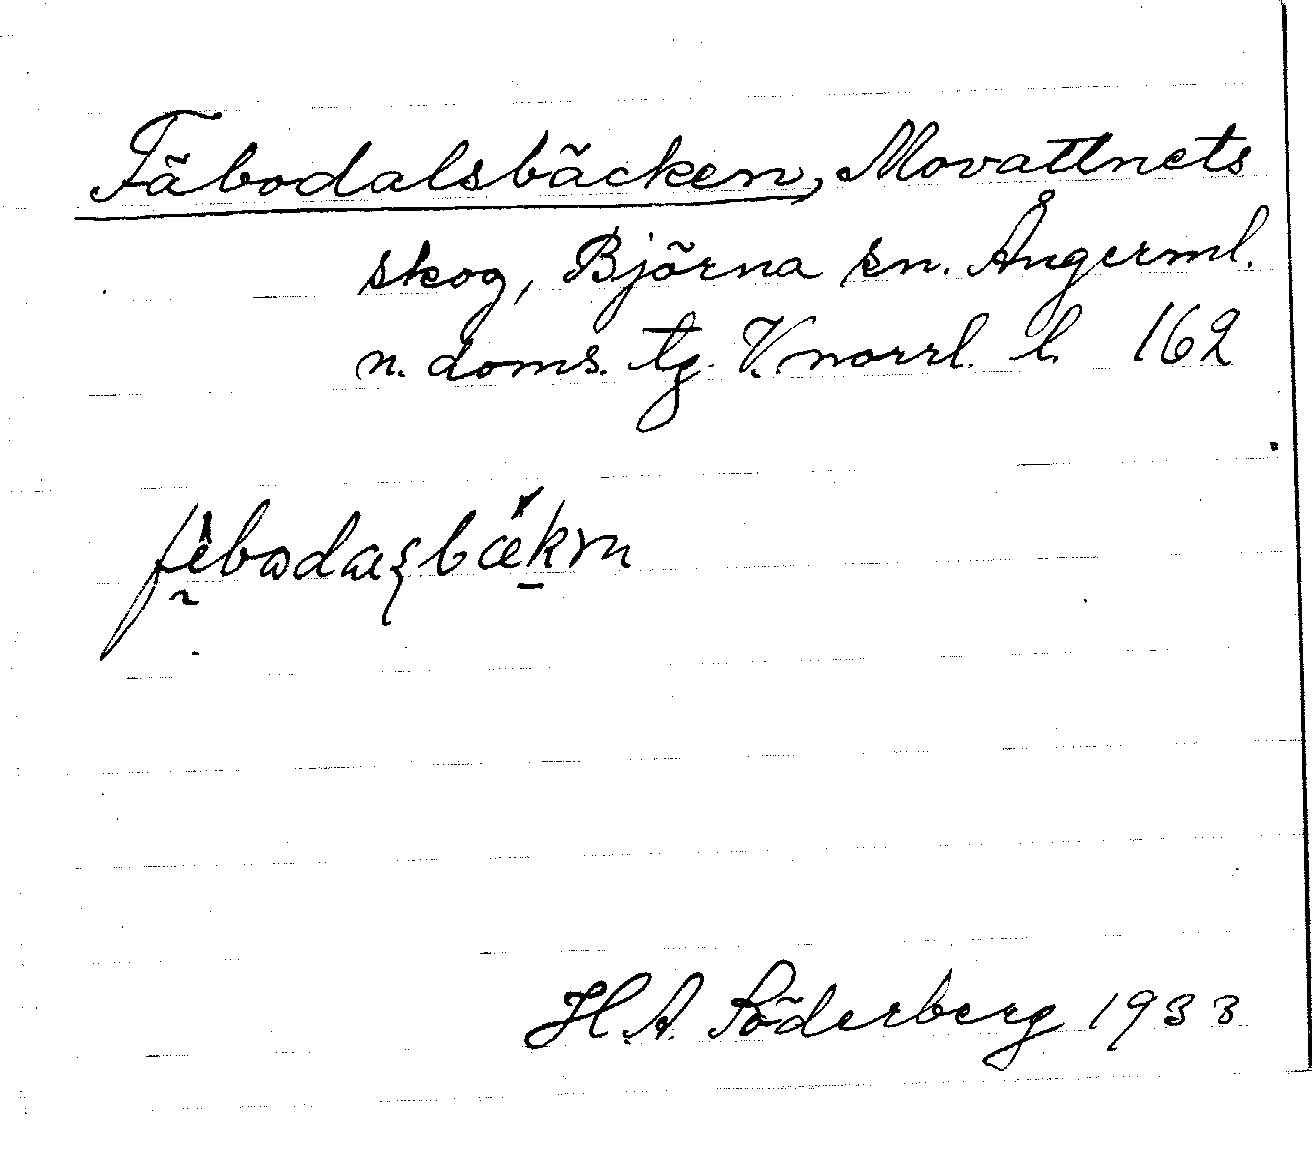 Fäbodalsbäcken, Movattnets
skog, Björna sn. Ångerml.
n. doms. tg. V. norrl. l. 162
H. A. Söderberg 1933